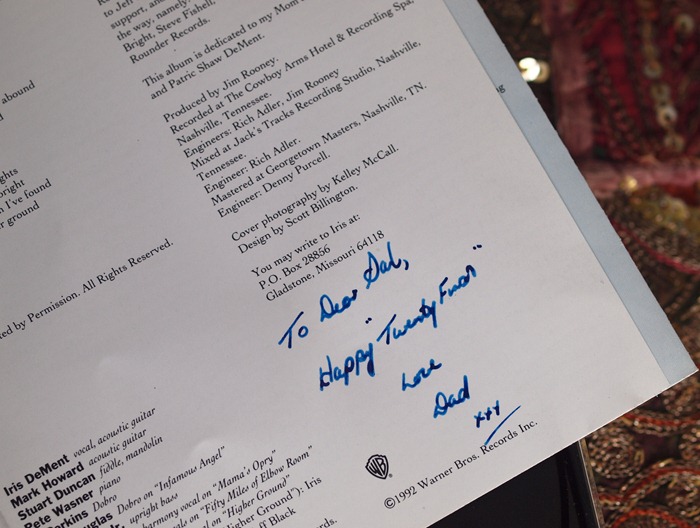 to Jeff
support, and
the way, namely,
Bright, Steve Fishell,
Rounder Records.
This album is dedicated to my Mom
and Patric Shaw DeMent.
Produced by Jim Rooney.
Recorded at The Cowboy Arms Hotel & Recording Spa,
Nashville, Tennessee.
Engineers: Rich Adler, Jim Rooney
Mixed at Jack's Tracks Recording Studio, Nashville,
Tennessee.
Engineer: Rich Adler.
Mastered at Georgetown Masters, Nashville, TN.
Engineer: Denny Purcell.
Cover photography by Kelley McCall.
Design by Scott Billington.
You may write to Iris at:
P.O. Box 28856
Gladstone, Missouri 64118
abound
ghts
bright
n I've found
r ground
ed by Permission. All Rights Reserved.
To Dear Sal,
Happy "Twenty Four"
Love
Dad
xxx
Iris DeMent vocal, acoustic guitar
Mark Howard acoustic guitar
Stuart Duncan fiddle, mandolin
Pete Wasner piano
orkins Dobro
uglas Dobro on "Infamous Angel"
Jr. upright bass
harmony vocal on "Mama's Opry"
als on "Fifty Miles of Elbow Room"
l on "Higher Ground"
Higher Ground"): Iris
ff Black
rds.
WB
©1992 Warner Bros. Records Inc.